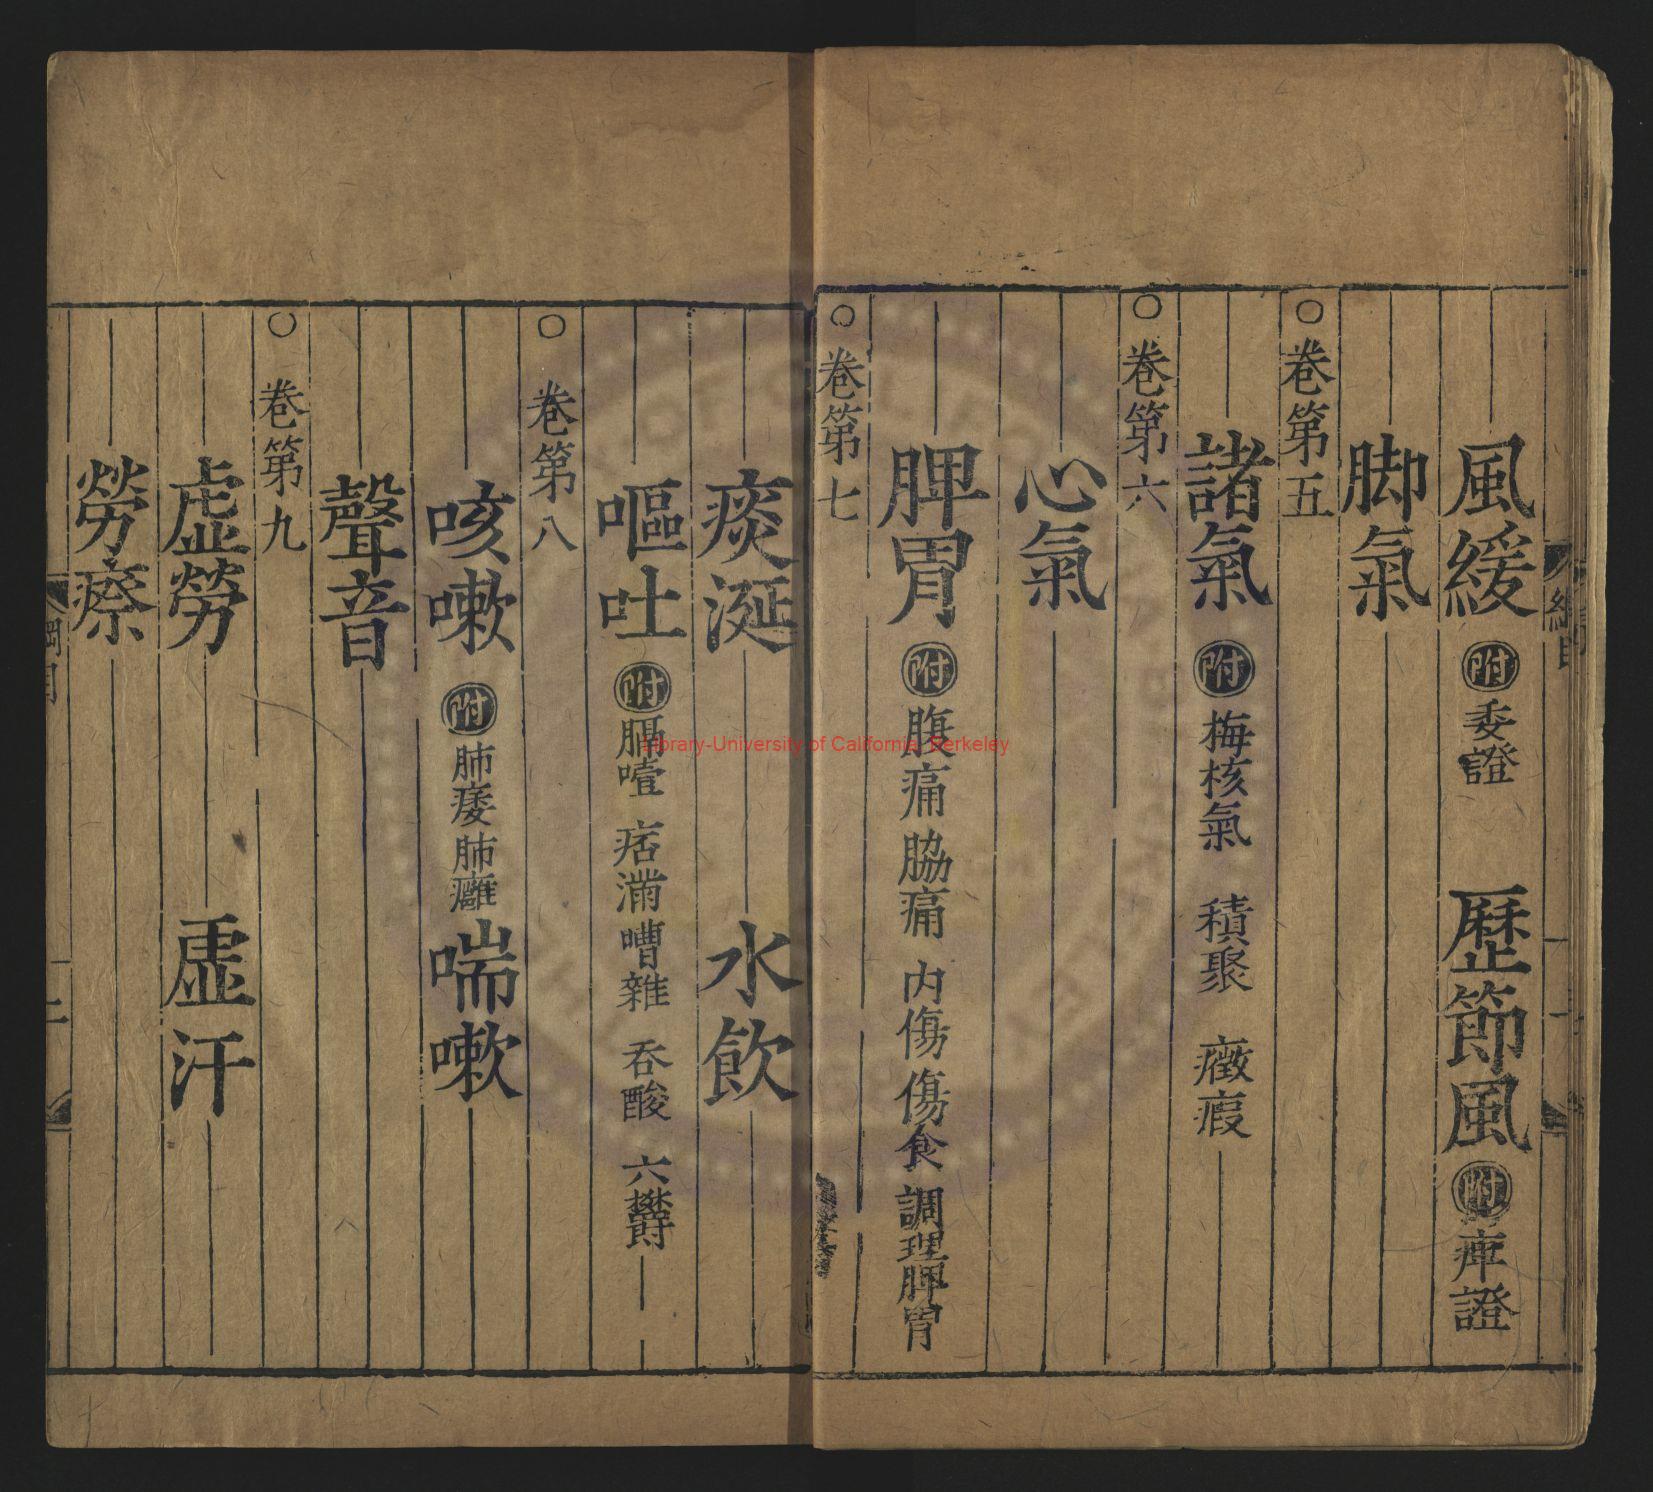 風緩 附 委證 歷節風 附 痺證
脚氣
○卷第五
諸氣 附 梅核氣 積聚 癥瘕
○卷第六
心氣
脾胃 附 腹痛 脇痛 内傷 傷食 調理脾胃
○卷第七
痰涎 水飲
嘔吐 附 膈噎 痞滿 嘈雜 吞酸 六欝
○卷第八
咳嗽 附 肺痿 肺癰 喘嗽
聲音
○卷第九
虛勞 虛汗
勞瘵
綱目
Library-University of California, Berkeley